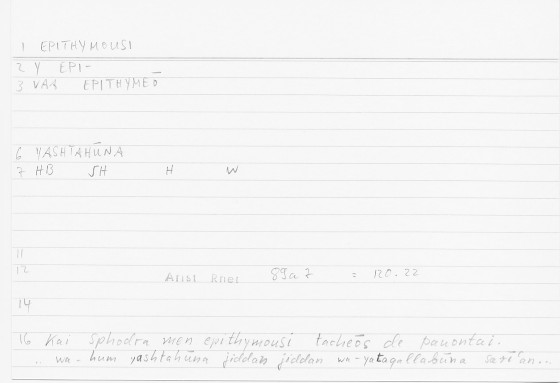 1 EPITHYMOUSI
2 Y EPI-
3 VAR EPITHYMEŌ
6 YASHTAHŪNA
7 HB SH H W
11
12 Arist Rhet 89a7 = 120.22
14
16 Kai sphodra men epithymousi tacheōs de pauontai.
.. wa-hum yashtahūna jiddan jiddan wa-yataqallabūna sarī'an..